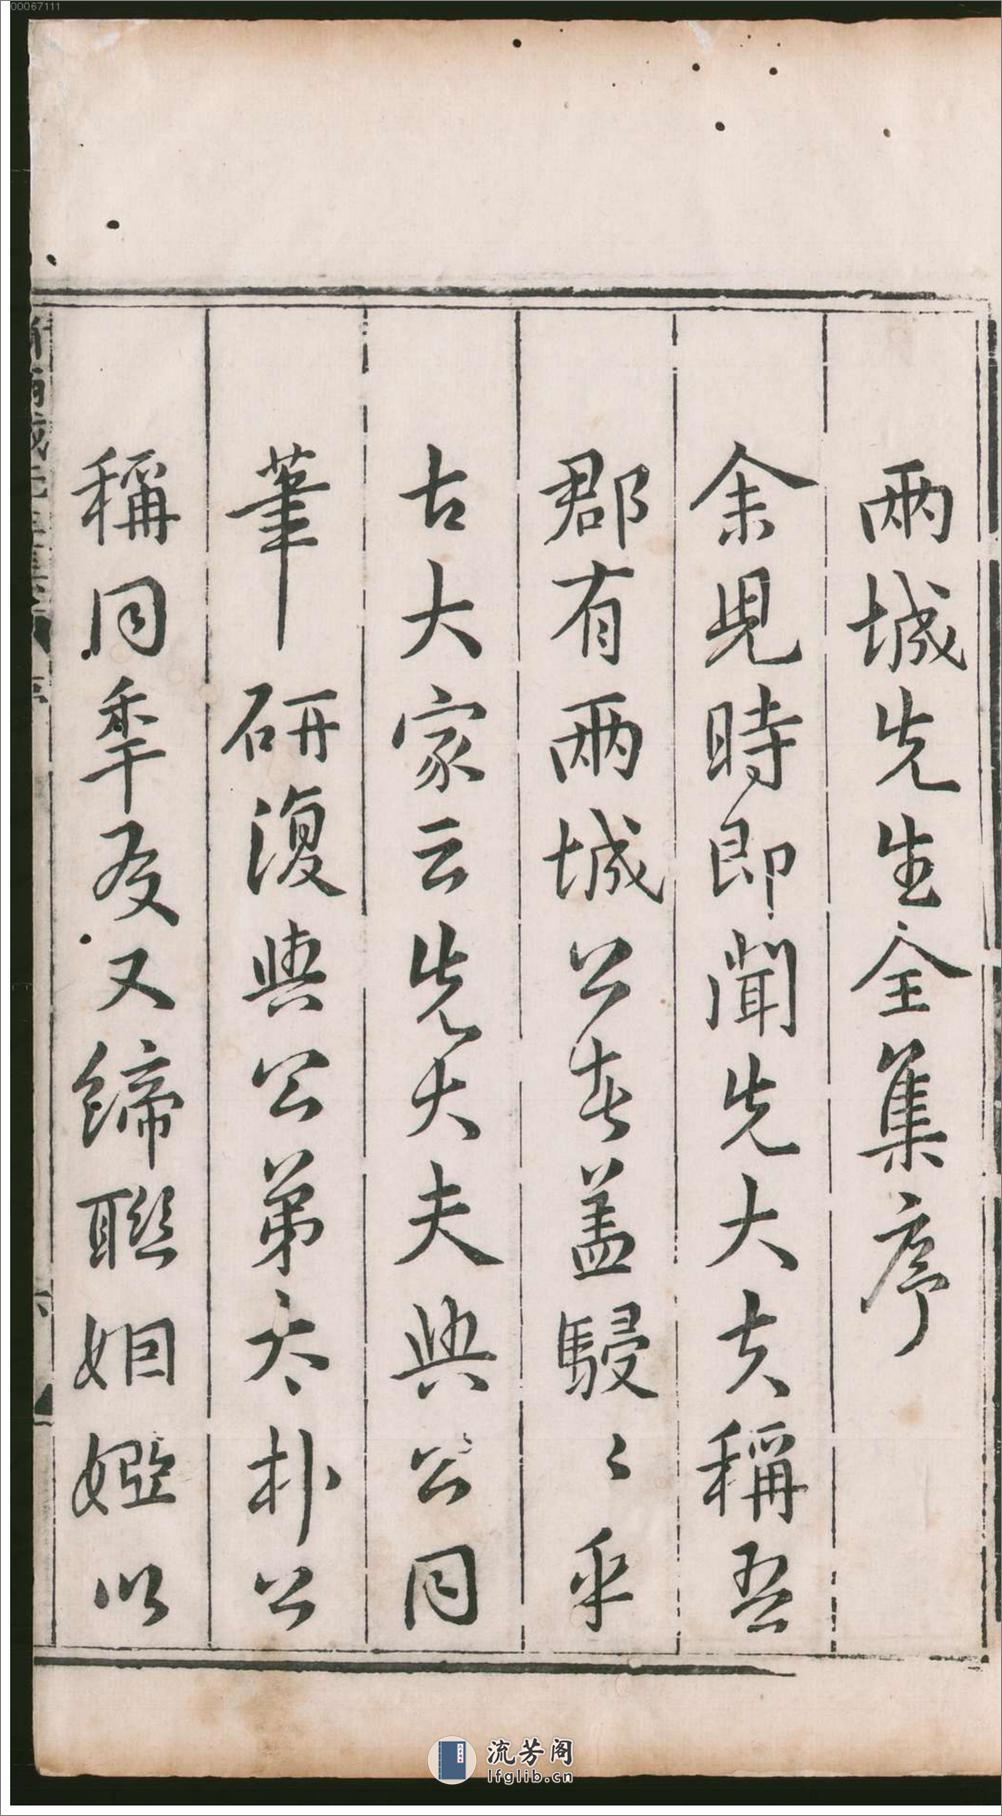 兩城先生全集序
余児時即聞先大夫稱吾
郡有兩城公者蓋駸〻乎
古大家云先大夫與公同
筆研復與公弟太朴公
稱同秊友又締聯姻婭以
流芳阁
lfglib.cn
00067111